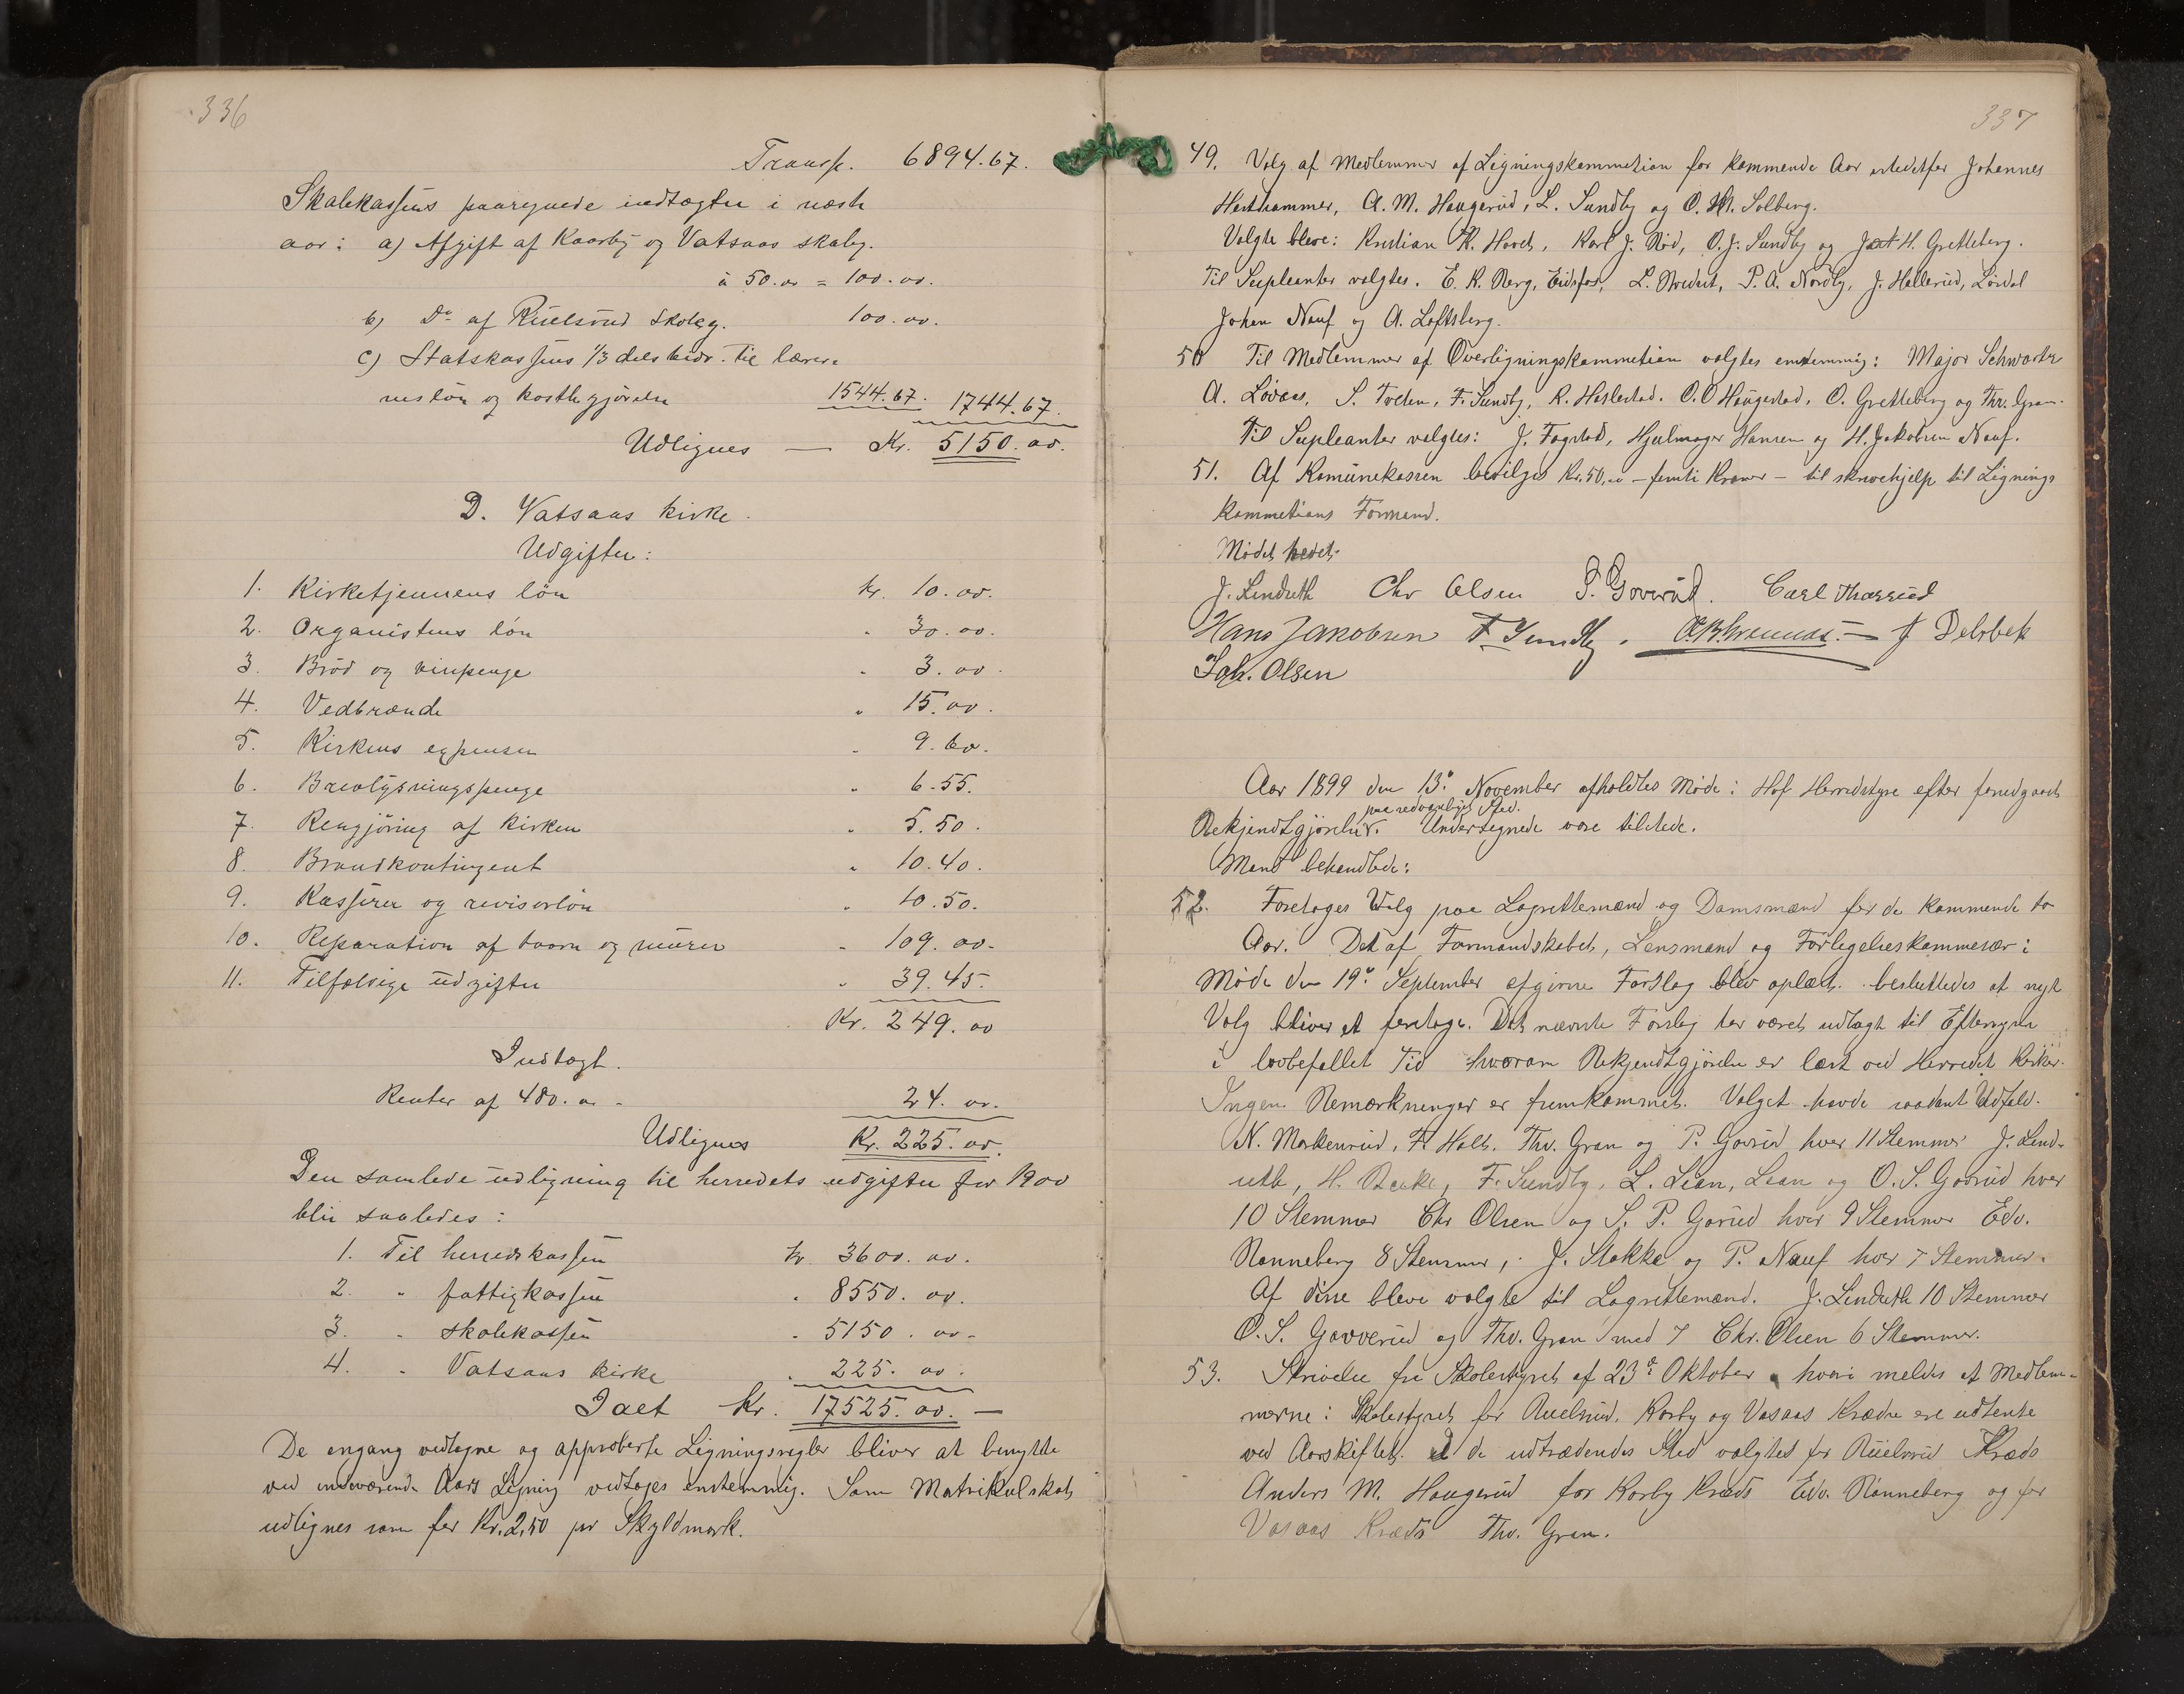 336
Transp. 6894.67.
Skolekassens paaregnede indtægter i næste
aar: a) Afgift af Kaarby og Vatsaas skoleg.
à 50.00 = 100.00.
b) Do af Ruelsrud Skoleg. 100.00.
c) Statskassens 1/3 dels bidr. til lærer-
nes løn og kosthgjørelse 1544.67. 1744.67.
Udlignes — Kr. 5150.00.
D. Vatsaas kirke.
Udgifter:
1. Kirketjennens løn kr. 10.00.
2. Organistens løn " 30.00.
3. Brød og vinpenge " 3.00.
4. Vedbrænde " 15.00.
5. Kirkens expenser " 9.60.
6. Brevlysningspenge " 6.55.
7. Rengjøring af kirken " 5.50.
8. Brandkontingent " 10.40.
9. Kasserer og revisorløn " 10.50.
10. Reparation af taarn og murer " 109.00.
11. Tilfældige udgifter " 39.45.
Kr. 249.00
Indtægt.
Renter af 480.00 - 24.00.
Udlignes Kr. 225.00.
Den samlede udligning til herredets udgifter for 1900
blir saaledes:
1. Til herredskassen kr. 3600.00.
2. " fattigkassen " 8550.00.
3. " skolekassen " 5150.00.
4. " Vatsaas kirke " 225.00.
Ialt Kr. 17525.00. —
De engang vedtagne og approberte Ligningsregler bliver at benytte
ved indeværende Aars Ligning vedtoges enstemmig. Som Matrikulskat
udlignes som før Kr. 2,50 pr Skyldmark.
337
49. Valg af Medlemmer af Ligningskommetion for kommende Aar istedetfor Johannes
Hesthammer, A. M. Haugerud, L. Sundby og O. M. Solberg.
Valgte bleve: Kristian K. Hovet, Karl J. Rød, O. J. Sundby og H. Gretteberg.
Til Supleanter valgtes. E. K. Berg, Eidsfos, L. P. A. Nordby, J. Hallerud, Løvdal
Johan Nauf og A. Loftsberg.
50 Til Medlemmer af Overligningskommetion valgtes enstemmig: Major Schwartz
A. Løvaas, S. F. Sundby, R. Haslestad. O. O Haugestad, O. Gretteberg og Thv. Gran.
Til Supleanter valgtes: J. Fogstad, Hjulmager Hansen og H. Jakobsen Nauf.
51. Af Komunekassen beviljes Kr. 50,00 – femti Kroner – til skrivehjelp til Lignings
kommetions Formand.
Mødet hevet.
J. Linduth Chr Olsen P. Goverud. Carl Thorrud
Hans Jakobsen F. Sundby. J Delebek
Joh. Olsen
Aar 1899 den 13de November afholdtes Møde i Hof Herredstyre efter forudgaaet
paa sedvanligt Sted.
Bekjendtgjørelse. Undersegnede vare tilstede.
Mand behandlede:
52. Foretoges Valg paa Lagrettemænd og Domsmænd for de kommende to
Aar. Det af Formandskabet, Lensmand og Forligelseskommesær i
Møde den 19de September afgivne Forslag blev oplæst. besluttedes at nyt
Valg bliver at foretage. Det nævnte Forslag har været udlagt til Eftersyn
i lovbefallet Tid hvorom Bekjendtgjørelse er læst ved Herredet Kirker.
Ingen Bemærkninger er fremkommet. Valget havde saadant Udfald.
N. Markerud, F. Holt. Thv. Gran og P. Goverud hver 11 Stemmer J. Lind-
uth, H. Bakke, F. Sundby, L. Lian, Lian og O. S. Goverud hver
10 Stemmer Chr Olsen og S. P. Gorud hver 9 Stemmer Edv.
Rønneberg 8 Stemmer, J. Stokke og P. Nauf hver 7 Stemmer.
Af disse bleve valgte til Lagrettemænd. J. Linduth 10 Stemmer
O. S. Gaverud og Thv. Gran med 7 Chr. Olsen 6 Stemmer.
53. Skrivelse fra Skolestyret af 23de Oktober hvori meldes at Medlem-
merne i Skolestyret for Ruelsrud, Korby og Vasaas Kredse ere udtente
ved Aarskiftet. I de udtrædendes Sted valgtes for Ruelsrud Kreds
Anders M. Haugerud for Korby Kreds Edv. Rønneberg og for
Vasaas Kreds Thv. Gran.